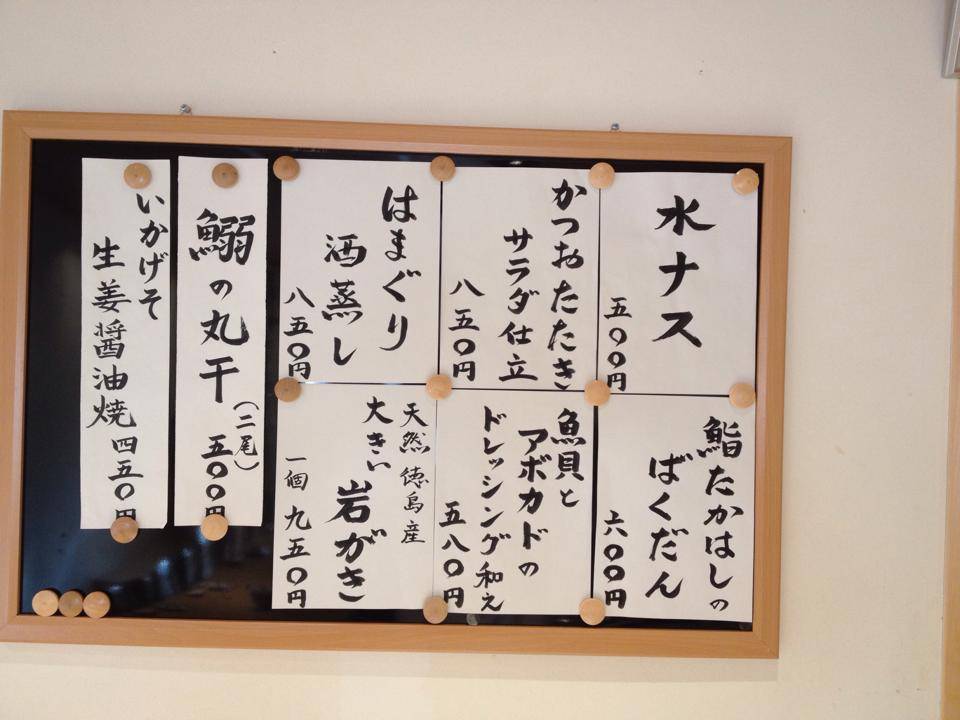 水ナス
五〇〇円
かつおたたき
サラダ仕立
八五〇円
はまぐり
酒蒸し
八五〇円
鮨たかはしの
ばくだん
六〇〇円
魚貝と
アボカドの
ドレッシング和え
五八〇円
天然徳島産
大きい
岩がき
一個 九五〇円
鰯の丸干
(二尾)
五〇〇円
いかげそ
生姜醤油焼 四五〇円